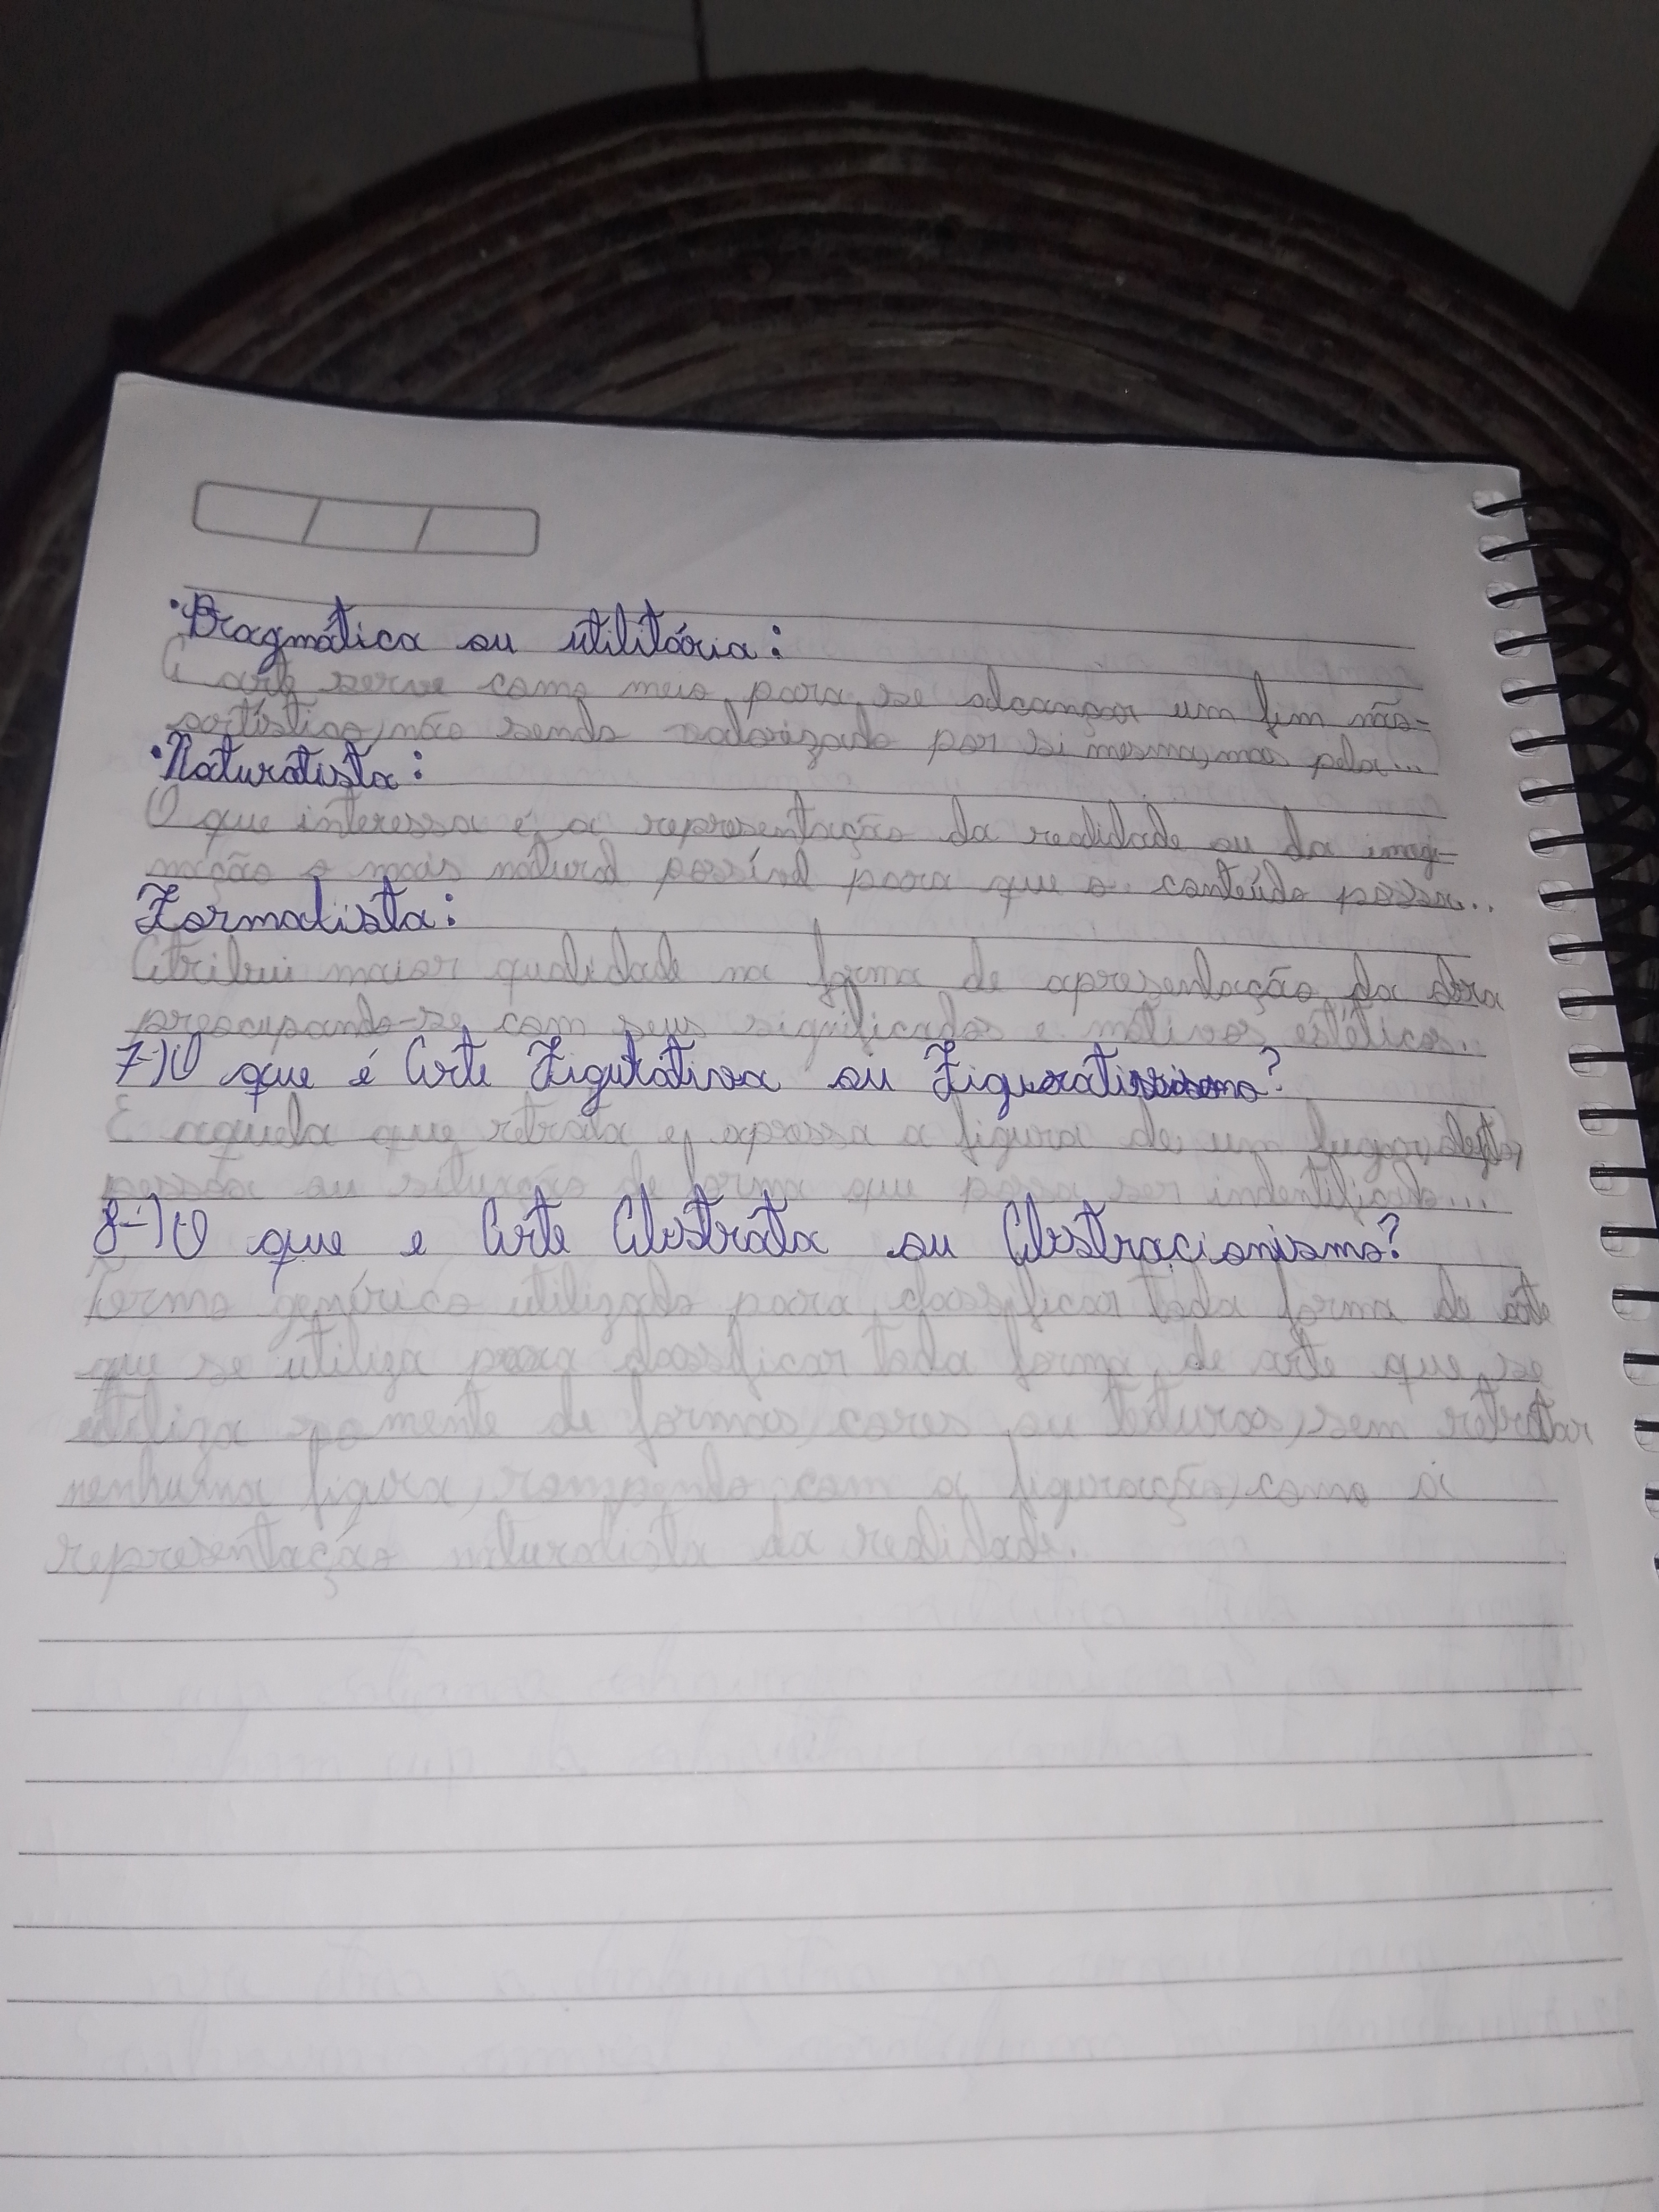 •Pragmática ou utilitária:
A arte serve como meio para se alcançar um fim não-
artístico, não sendo valorizada por si mesma, mas pela...
•Naturalista:
O que interessa é a representação da realidade ou da imagi-
nação o mais natural possível para que o conteúdo possa...
Formalista:
Atribui maior qualidade na forma de apresentação da obra
preocupando-se com seus significados e estéticos...
7-)O que é Arte Figurativa ou Figurativismo?
É aquela que retrata e expressa a figura de um lugar, objeto,
pessoa ou situação de forma que possa ser identificado...
8-)O que e Arte Abstrata ou Abstracionismo?
Termo genérico utilizado para classificar toda forma de arte
que se utiliza para classificar toda forma de arte que se
utiliza somente de formas, cores ou texturas, sem retratar
nenhuma figura, rompendo com a figuração, como a
representação naturalista da realidade.